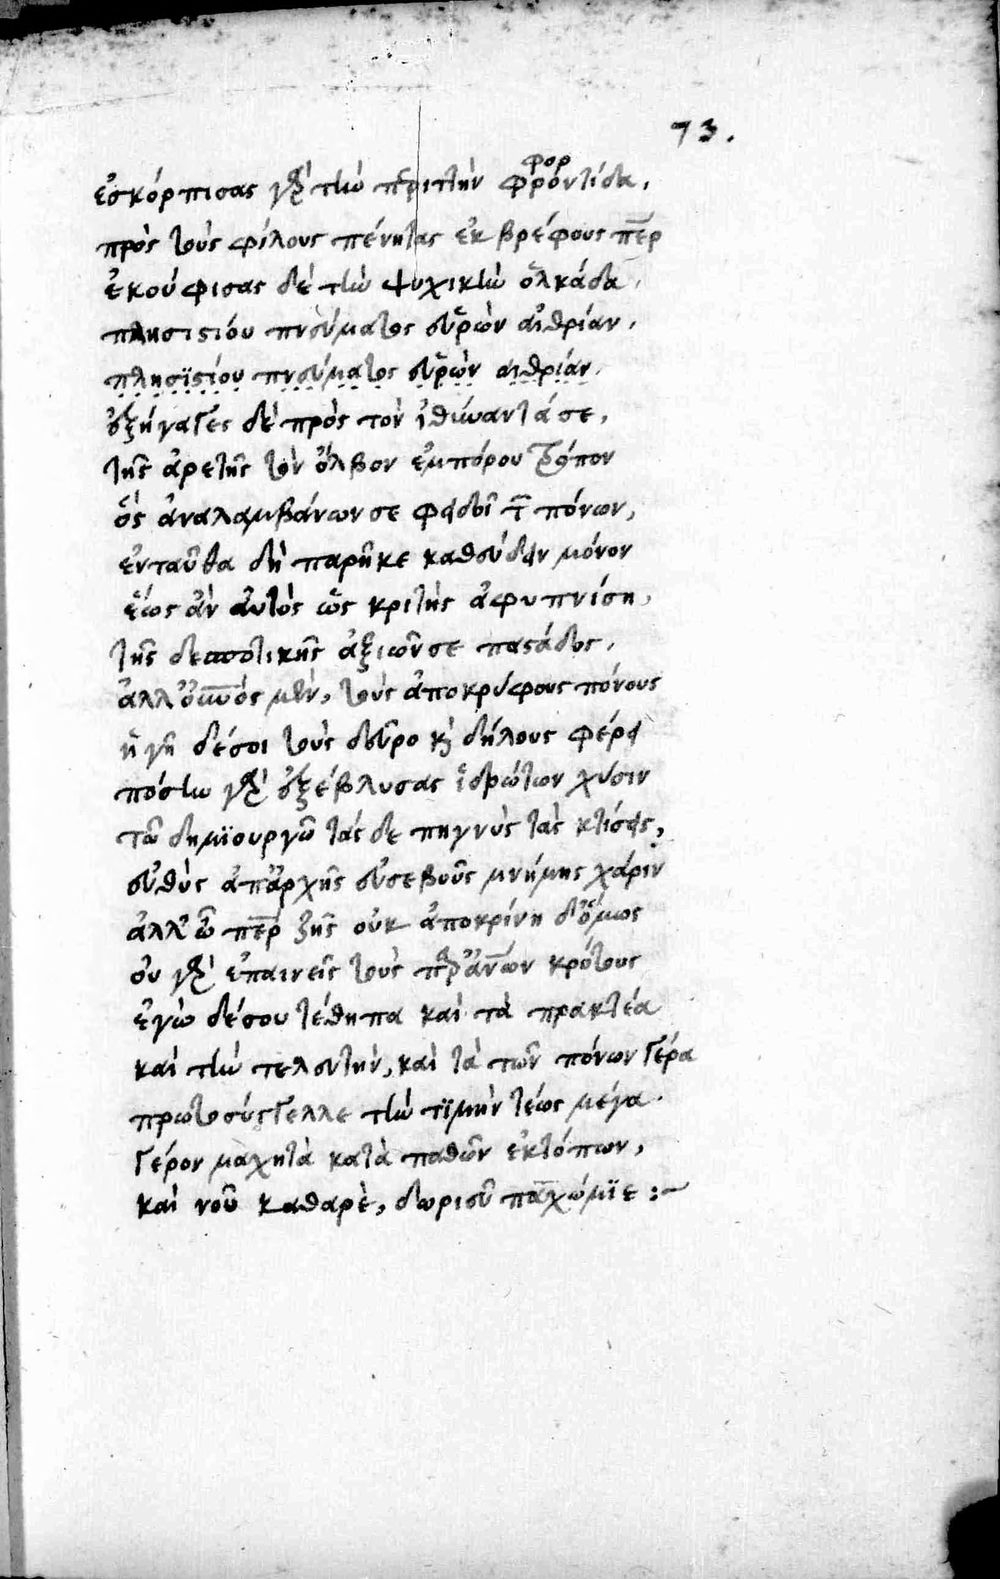 73.
φορ
ἐσκόρπισας γὰρ τὴν περιττὴν φροντίδα,
πρὸς τοὺς φίλους πένητας ἐκ βρέφους πάτερ
ἐκούφισας δὲ τὴν ψυχικὴν ὁλκάδα,
πλησιστίου πνεύματος εὑρὼν αἰθρίαν,
πλησϊστίου πνεύματος εὑρὼν αἰθρίαν,
ἐξήγαγες δὲ πρὸς τὸν ἰθύναντά σε,
τῆς ἀρετῆς τὸν ὄλβον ἐμπόρου τρόπον
ὃς ἀναλαμβάνων σε φειδοῖ τῶν πόνων,
ἐνταῦθα δὴ παρῆκε καθεύδειν μόνον
ἕως ἂν αὐτὸς ὡς κριτὴς ἀφυπνίση,
τῆς δεσποτικῆς ἀξιῶν σε παστάδος,
ἀλλ' ὁ μὲν, τοὺς ἀποκρύφους πόνους
ἡ γῆ δέ σοι τοὺς δεῦρο καὶ δήλους φέρει
πόσην γὰρ ἐξέβλυσας ἱδρώτων χύσιν
τῶ δημϊουργῶ τάς δε πηγνὺς τὰς κτίσεις,
εὐθὺς ἀπαρχῆς εὐσεβοῦς μνήμης χάριν
ἀλλ' ὦ πάτερ ζῆς οὐκ ἀποκρίνη δ' ὅμως
οὐ γὰρ ἐπαινεῖς τοὺς παρὰ ἀνθρώπων κρότους
ἐγὼ δέ σου τέθηπα καὶ τὰ πρακτέα
καὶ τὴν τελευτὴν, καὶ τὰ τῶν πόνων γέρα
πρωτοσύγγελλε τὴν τϊμὴν τέως μέγα.
γέρον μαχητὰ κατὰ παθῶν ἐκτόπων,
καὶ νοῦ καθαρὲ, δωρεῖσθ παχώμϊε :~